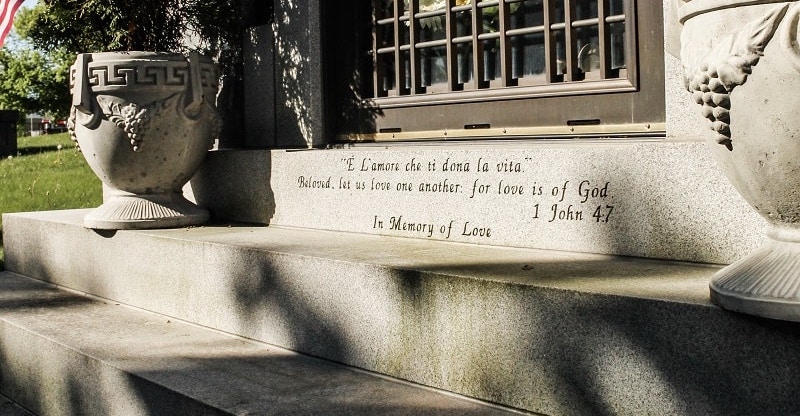 "È L'amore che ti dona la vita."
Beloved, let us love one another: for love is of God
1 John 4:7
In Memory of Love